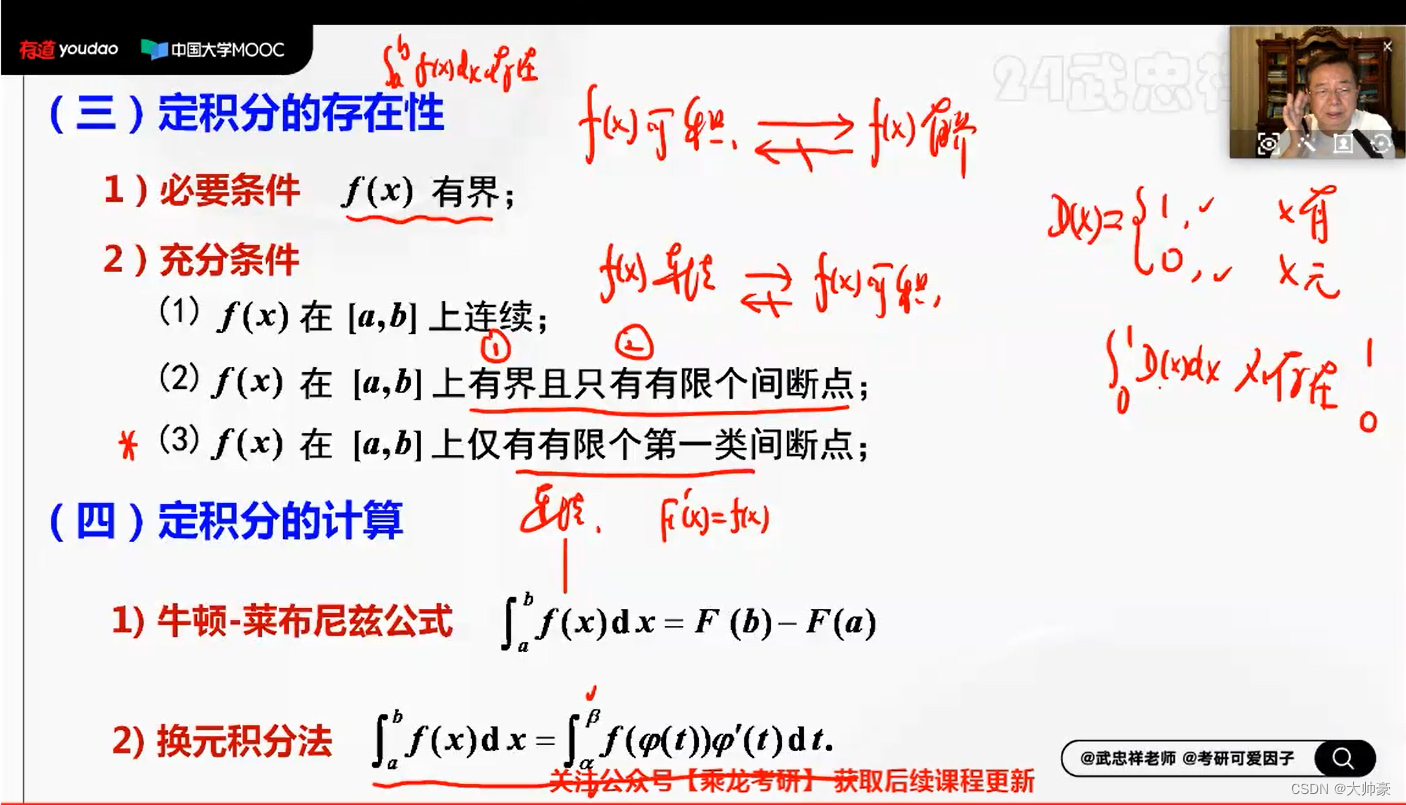 有道 youdao 中国大学MOOC
∫_a^b f(x)dx 存在
24武忠祥
(三)定积分的存在性
f(x)可积. ⇄ f(x)有界
1)必要条件 f(x) 有界;
D(x)={1, ✓ x有
0, ✓ x无
2)充分条件
f(x)连续 ⇄ f(x)可积.
(1) f(x) 在 [a,b] 上连续;
① ②
(2) f(x) 在 [a,b] 上有界且只有有限个间断点;
∫_0^1 D(x)dx 不存在 1
0
* (3) f(x) 在 [a,b] 上仅有有限个第一类间断点;
连续. F'(x)=f(x)
(四)定积分的计算
1) 牛顿-莱布尼兹公式 ∫_a^b f(x)dx = F(b)−F(a)
2) 换元积分法 ∫_a^b f(x)dx = ∫_α^β f(φ(t))φ′(t)dt.
@武忠祥老师 @考研可爱因子
关注公众号【乘龙考研】获取后续课程更新
CSDN @大帅豪